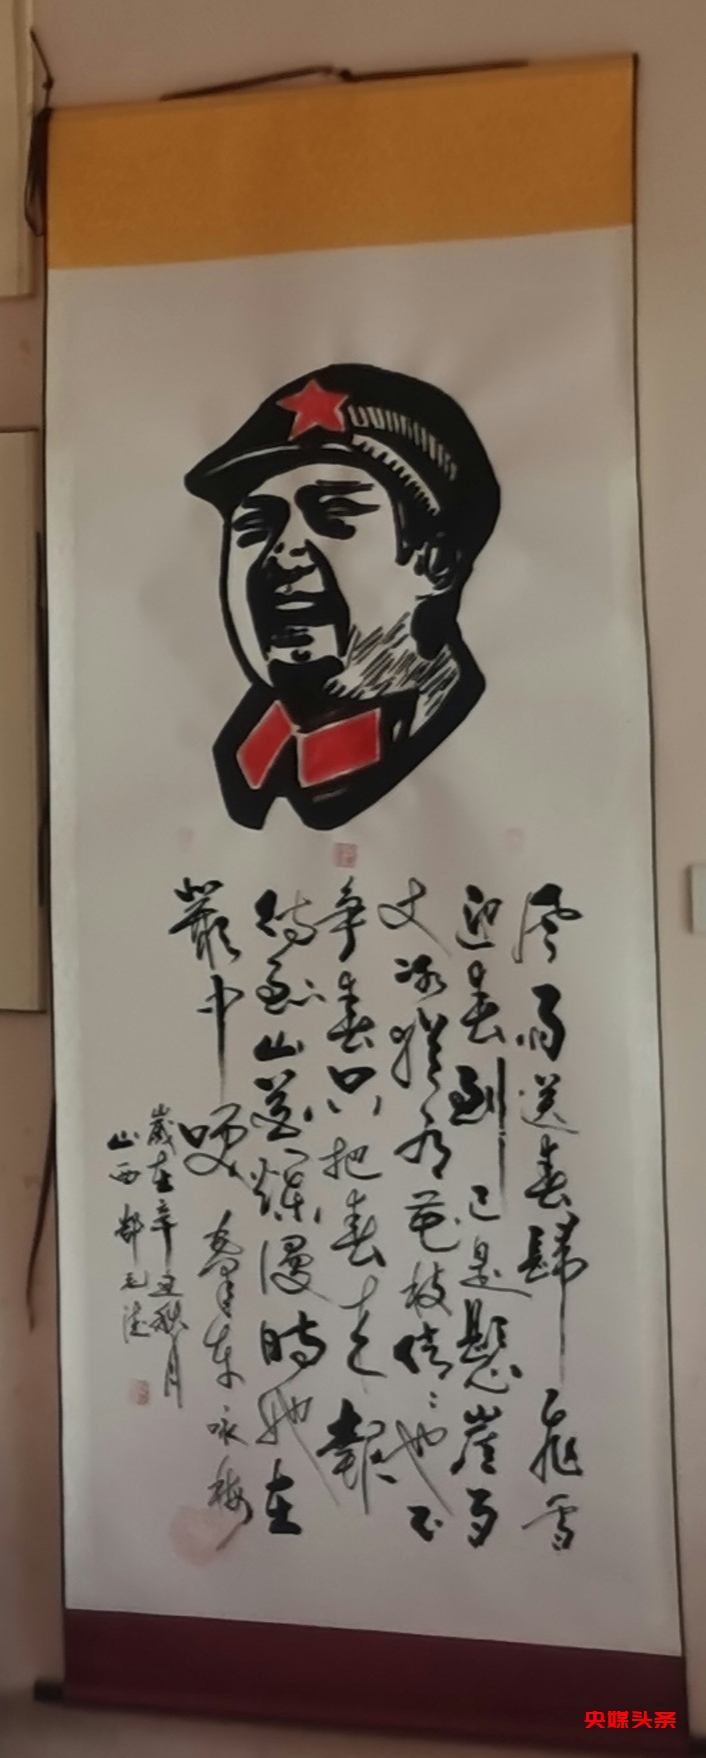 風雨送春歸飛雪
迎春到已是懸崖百
丈冰猶有花枝俏〻也不
争春只把春来報
待到山花爛漫時她在
叢中咲 東咏梅
歲在辛丑秋月
山西
央媒头条